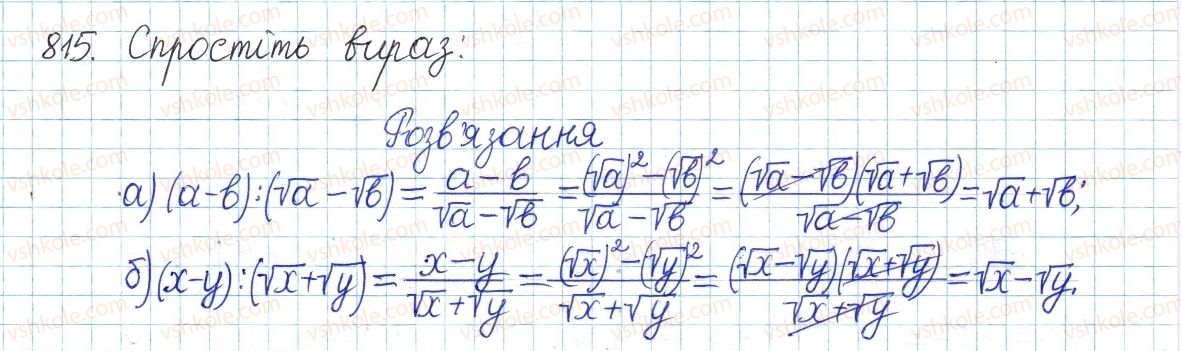 815. Спростіть вираз:
Розв'язання
а) (a-b):(√a-√b)=\frac{a-b}{√a-√b}=\frac{(√a)²-(√b)²}{√a-√b}=\frac{(√a-√b)(√a+√b)}{√a-√b}=√a+√b;
б) (x-y):(√x+√y)=\frac{x-y}{√x+√y}=\frac{(√x)²-(√y)²}{√x+√y}=\frac{(√x-√y)(√x+√y)}{√x+√y}=√x-√y.